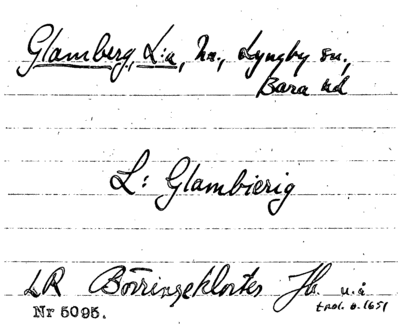 Glamberg, L:a, Hn., Lyngby sn.,
Bara hd
L: Glambierig
LR Börringeklosters Jb. u.å
trol. o. 1651
Nr 5095.